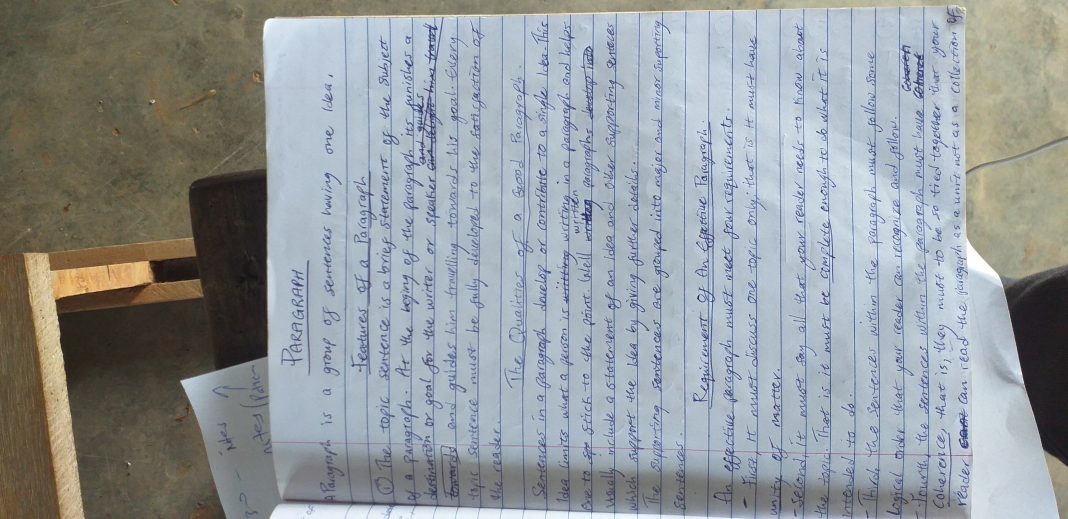 PARAGRAPH
A Paragraph is a group of sentences having one idea.
Features of a Paragraph
① The topic sentence is a brief statement of the subject
of a paragraph. At the beging of the paragraph its punishes a
destination or goal for the writer or speaker and guides
toward and guides him travelling towards his goal. Every
topic sentence must be fully developed to the satisfaction of
the reader.
The Qualities of a Good Paragraph.
Sentences in a paragraph develop or contribute to a single idea. This
idea limits what a person is writing writing in a paragraph and helps
one to stick to the point. Well written paragraphs
Usually include a statement of an idea and other supporting sentences
which support the idea by giving further details.
The supporting sentences are grouped into major and minor supporting
sentences.
Requirement of An Effective Paragraph.
An effective paragraph must meet four requirements.
- First, It must discuss one topic only; that is it must have
unity of matter.
- Second, it must say all that your reader needs to know about
the topic. That is it must be complete enough to do what it is
intended to do.
- Third the Sentences within the paragraph must follow some
logical order that your reader can recognize and follow.
- Fourth, the sentences within the paragraph must have
Coherence, that is, they must to be so tied together that your
reader can read the paragraph as a unit not as a collection of